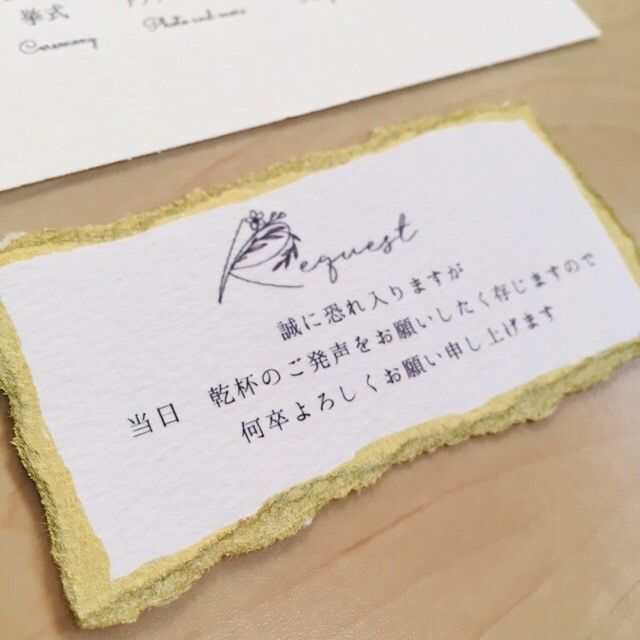 挙式
Ceremony
Request
誠に恐れ入りますが
当日 乾杯のご発声をお願いしたく存じますので
何卒よろしくお願い申し上げます